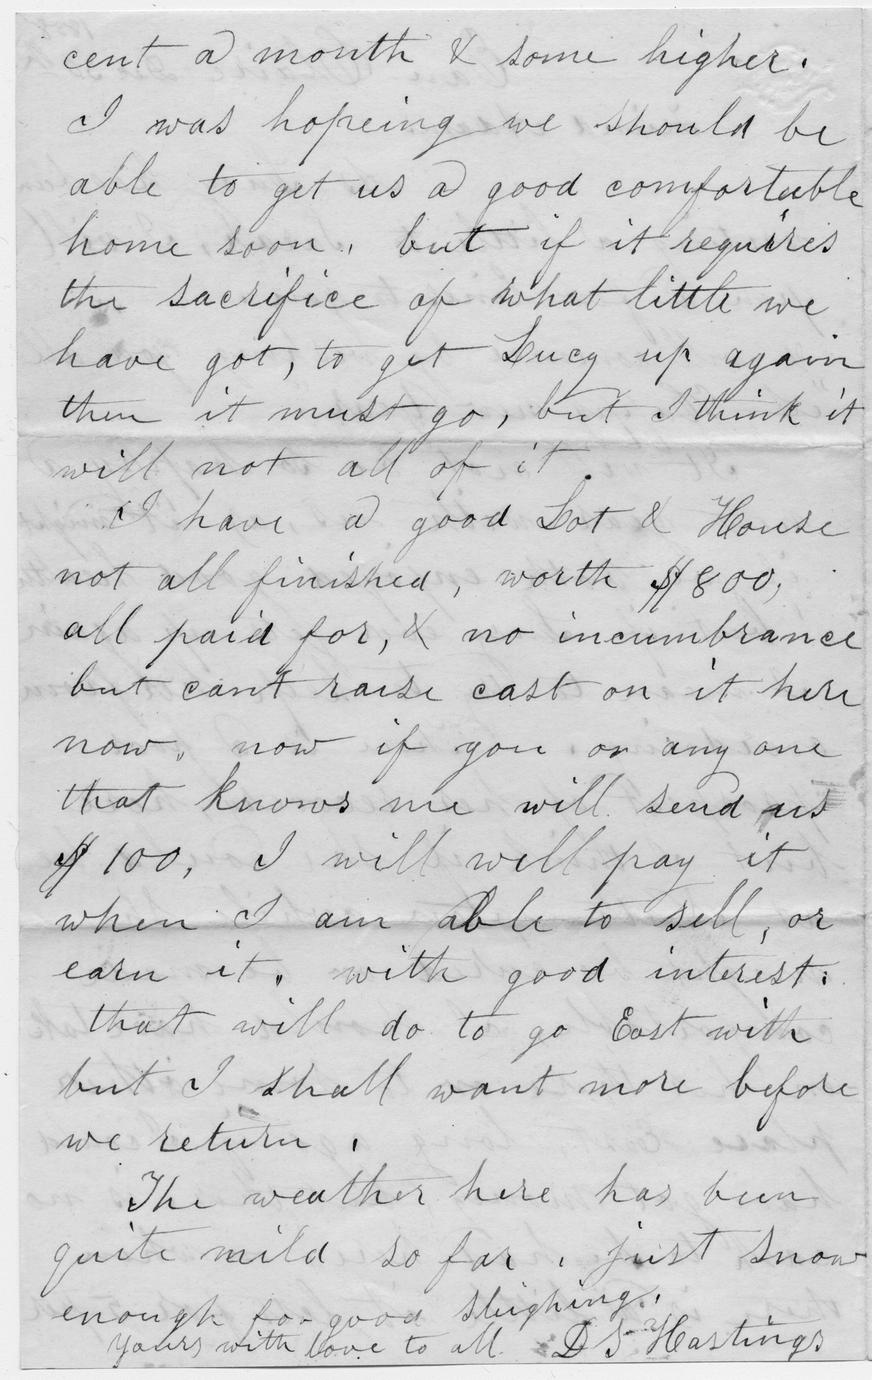 cent a month & some higher.
I was hopeing we should be
able to get us a good comfortable
home soon, but if it requires
the sacrifice of what little we
have got, to get Lucy up again
then it must go, but I think it
will not all of it.
I have a good Lot & House
not all finished, worth $800,
all paid for, & no incumbrance
but cant raise cast on it here
now, now if you or any one
that knows me will send us
$100, I will well pay it
when I am able to sell, or
earn it, with good interest.
that will do to go East with
but I shall want more before
we return.
The weather here has been
quite mild so far, just snow
enough for good sleighing.
Yours with love to all D S Hastings